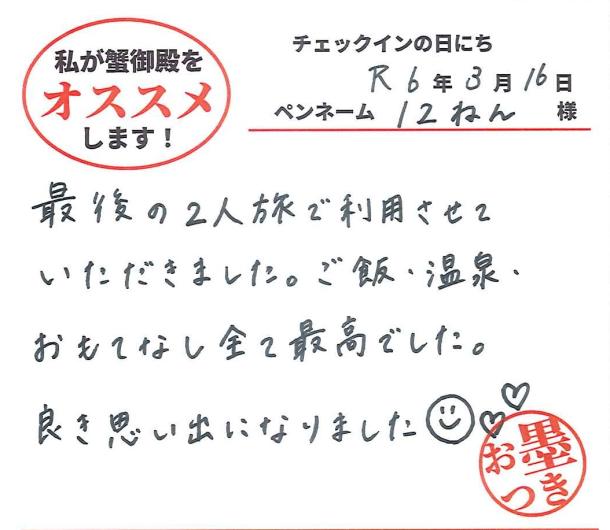 私が蟹御殿を
オススメ
します！
チェックインの日にち
R6年3月16日
ペンネーム 12ねん 様
最後の2人旅で利用させて
いただきました。ご飯・温泉・
おもてなし全て最高でした。
良き思い出になりました
お墨
つき